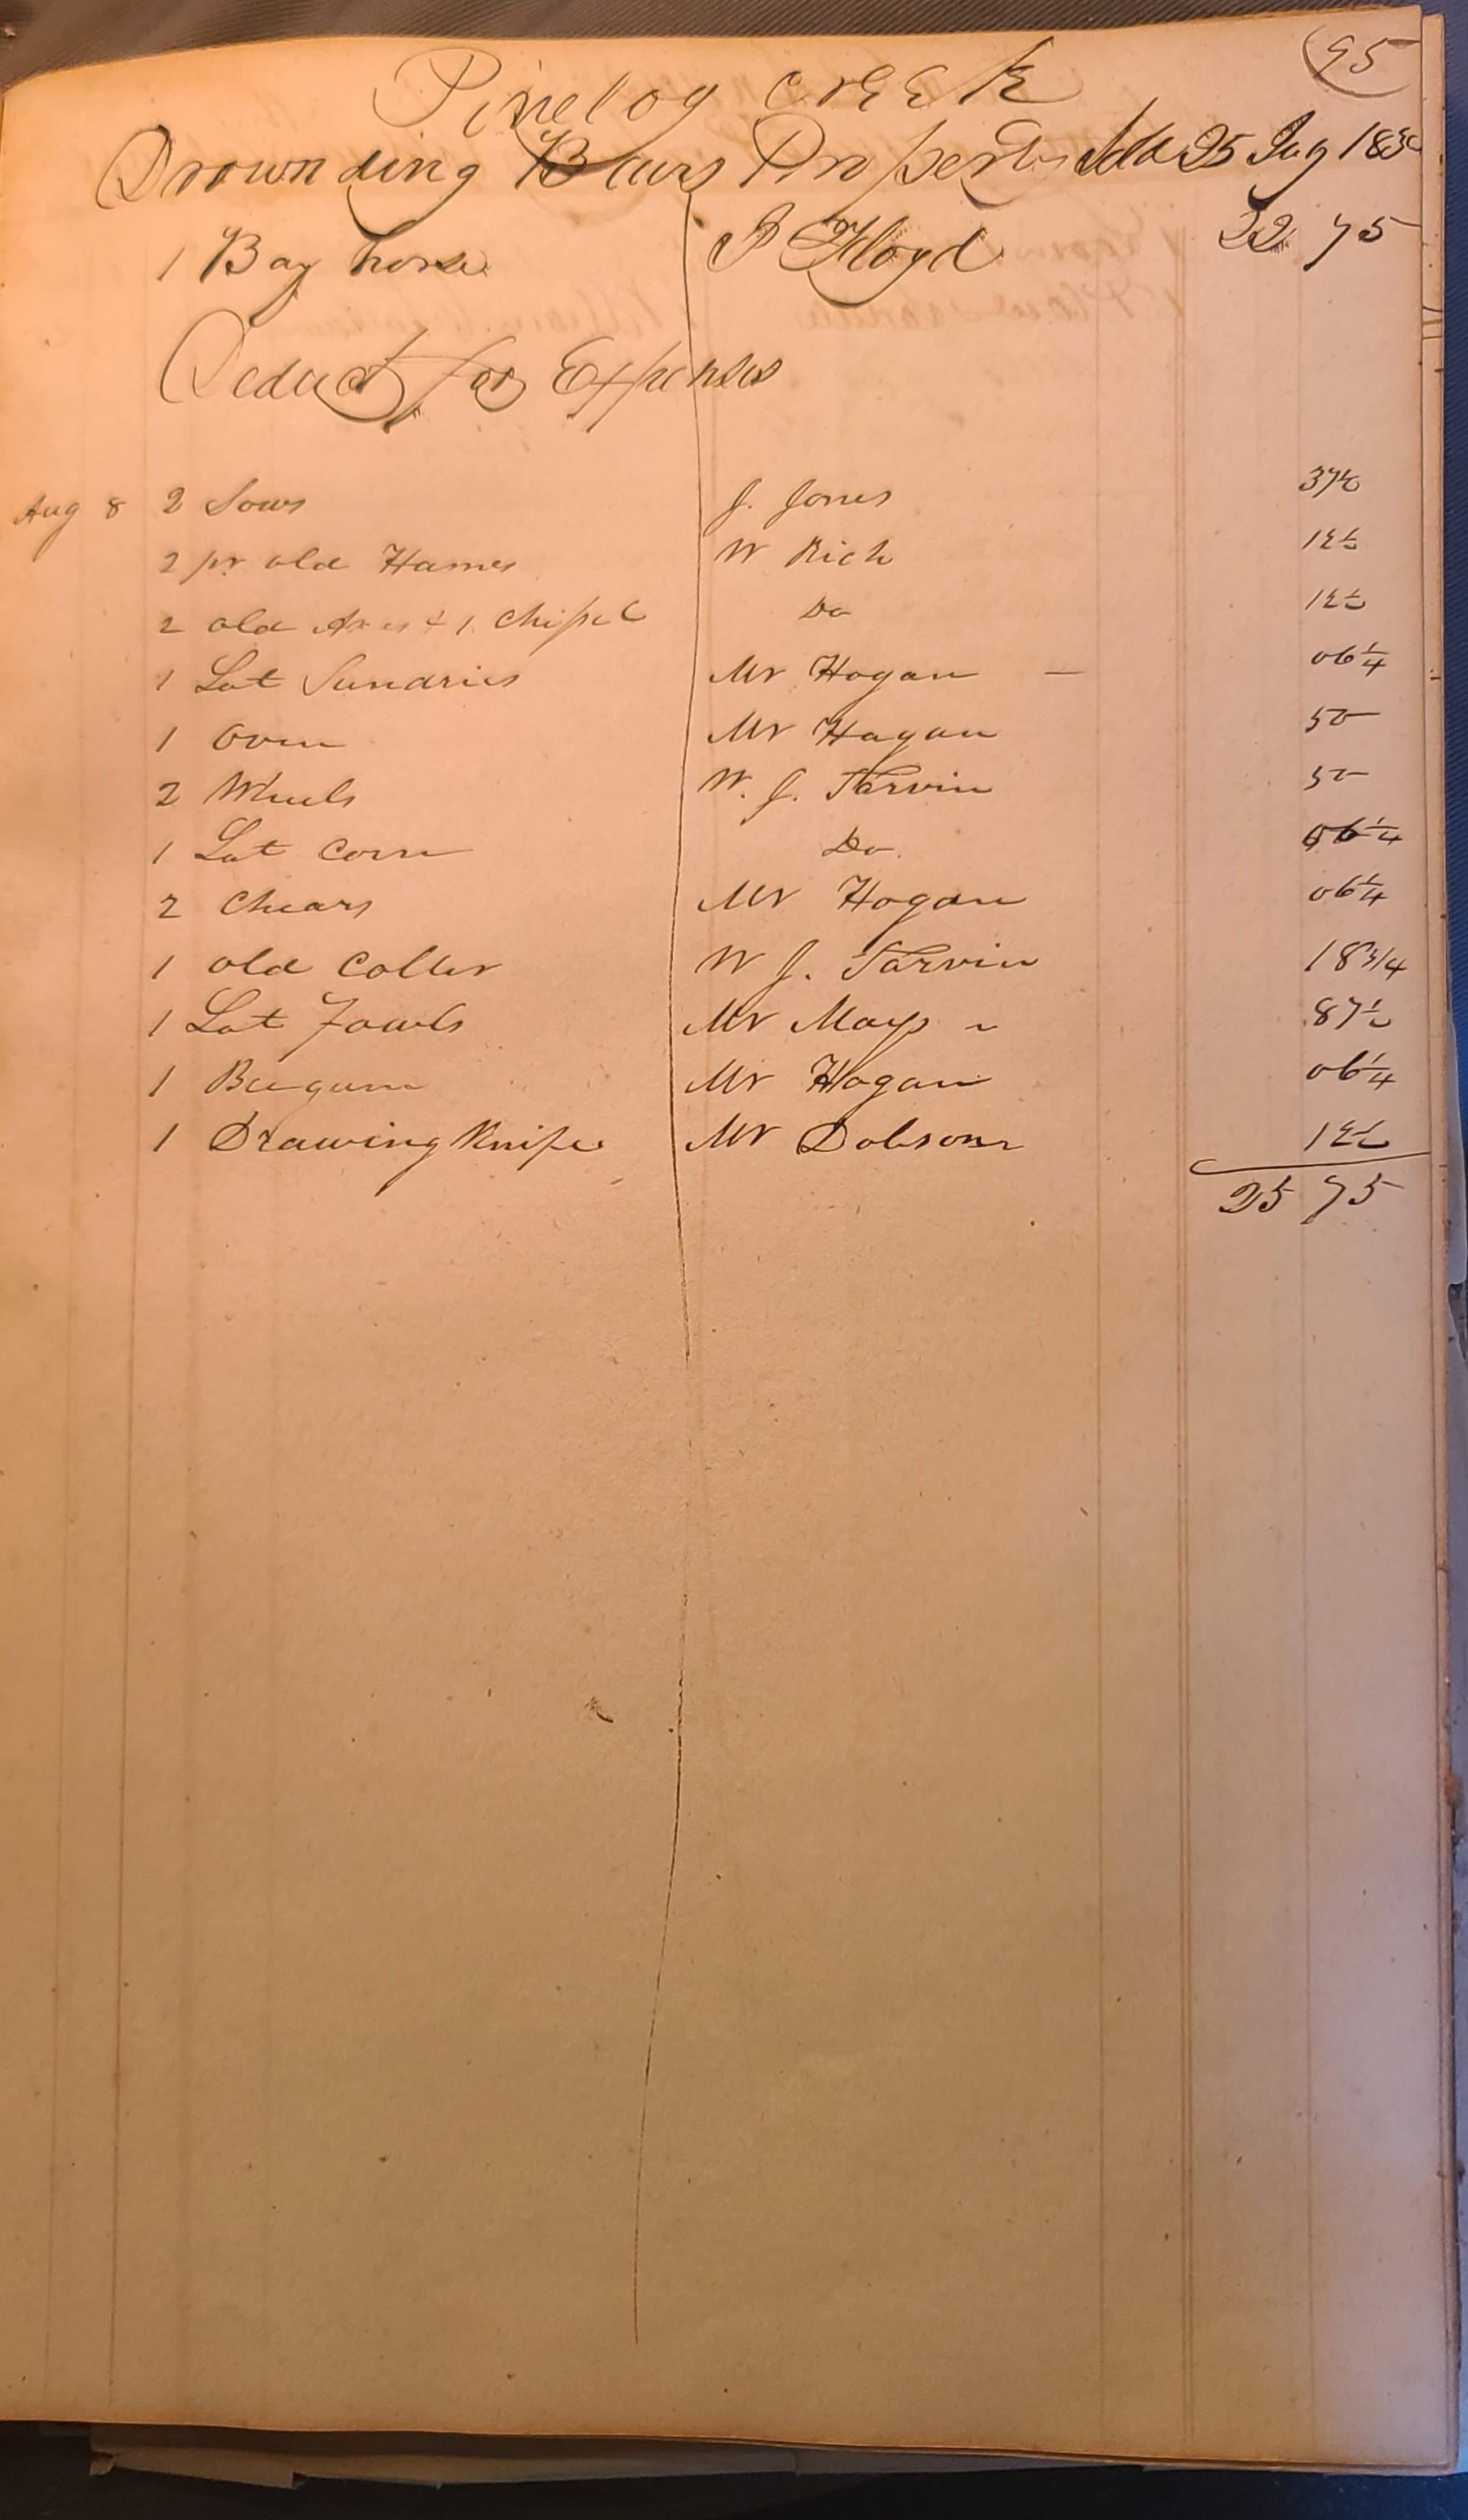 95
Pinelog CrEEK
Drownding Bairs Property Sold 25 Aug 183
1 Bay horse J Floyd 22 75
Deduct for Expenses
Aug 8 2 Sows J. Jones 37½
2 pr old Hames W Rich 12½
2 old Axes & 1 Chisel Do 12½
1 Lot Sundries Mr Hogan — 06¼
1 Oven Mr Hogan 50
2 Wheels W. J. Tarvin 50
1 Lot Corn Do 06¼
2 Chears Mr Hogan 06¼
1 old Coller W J. Tarvin 18¾
1 Lot Fowls Mr Mays 87½
1 Beegum Mr Hogan 06¼
1 Drawing Knife Mr Dobson 12½
25 75